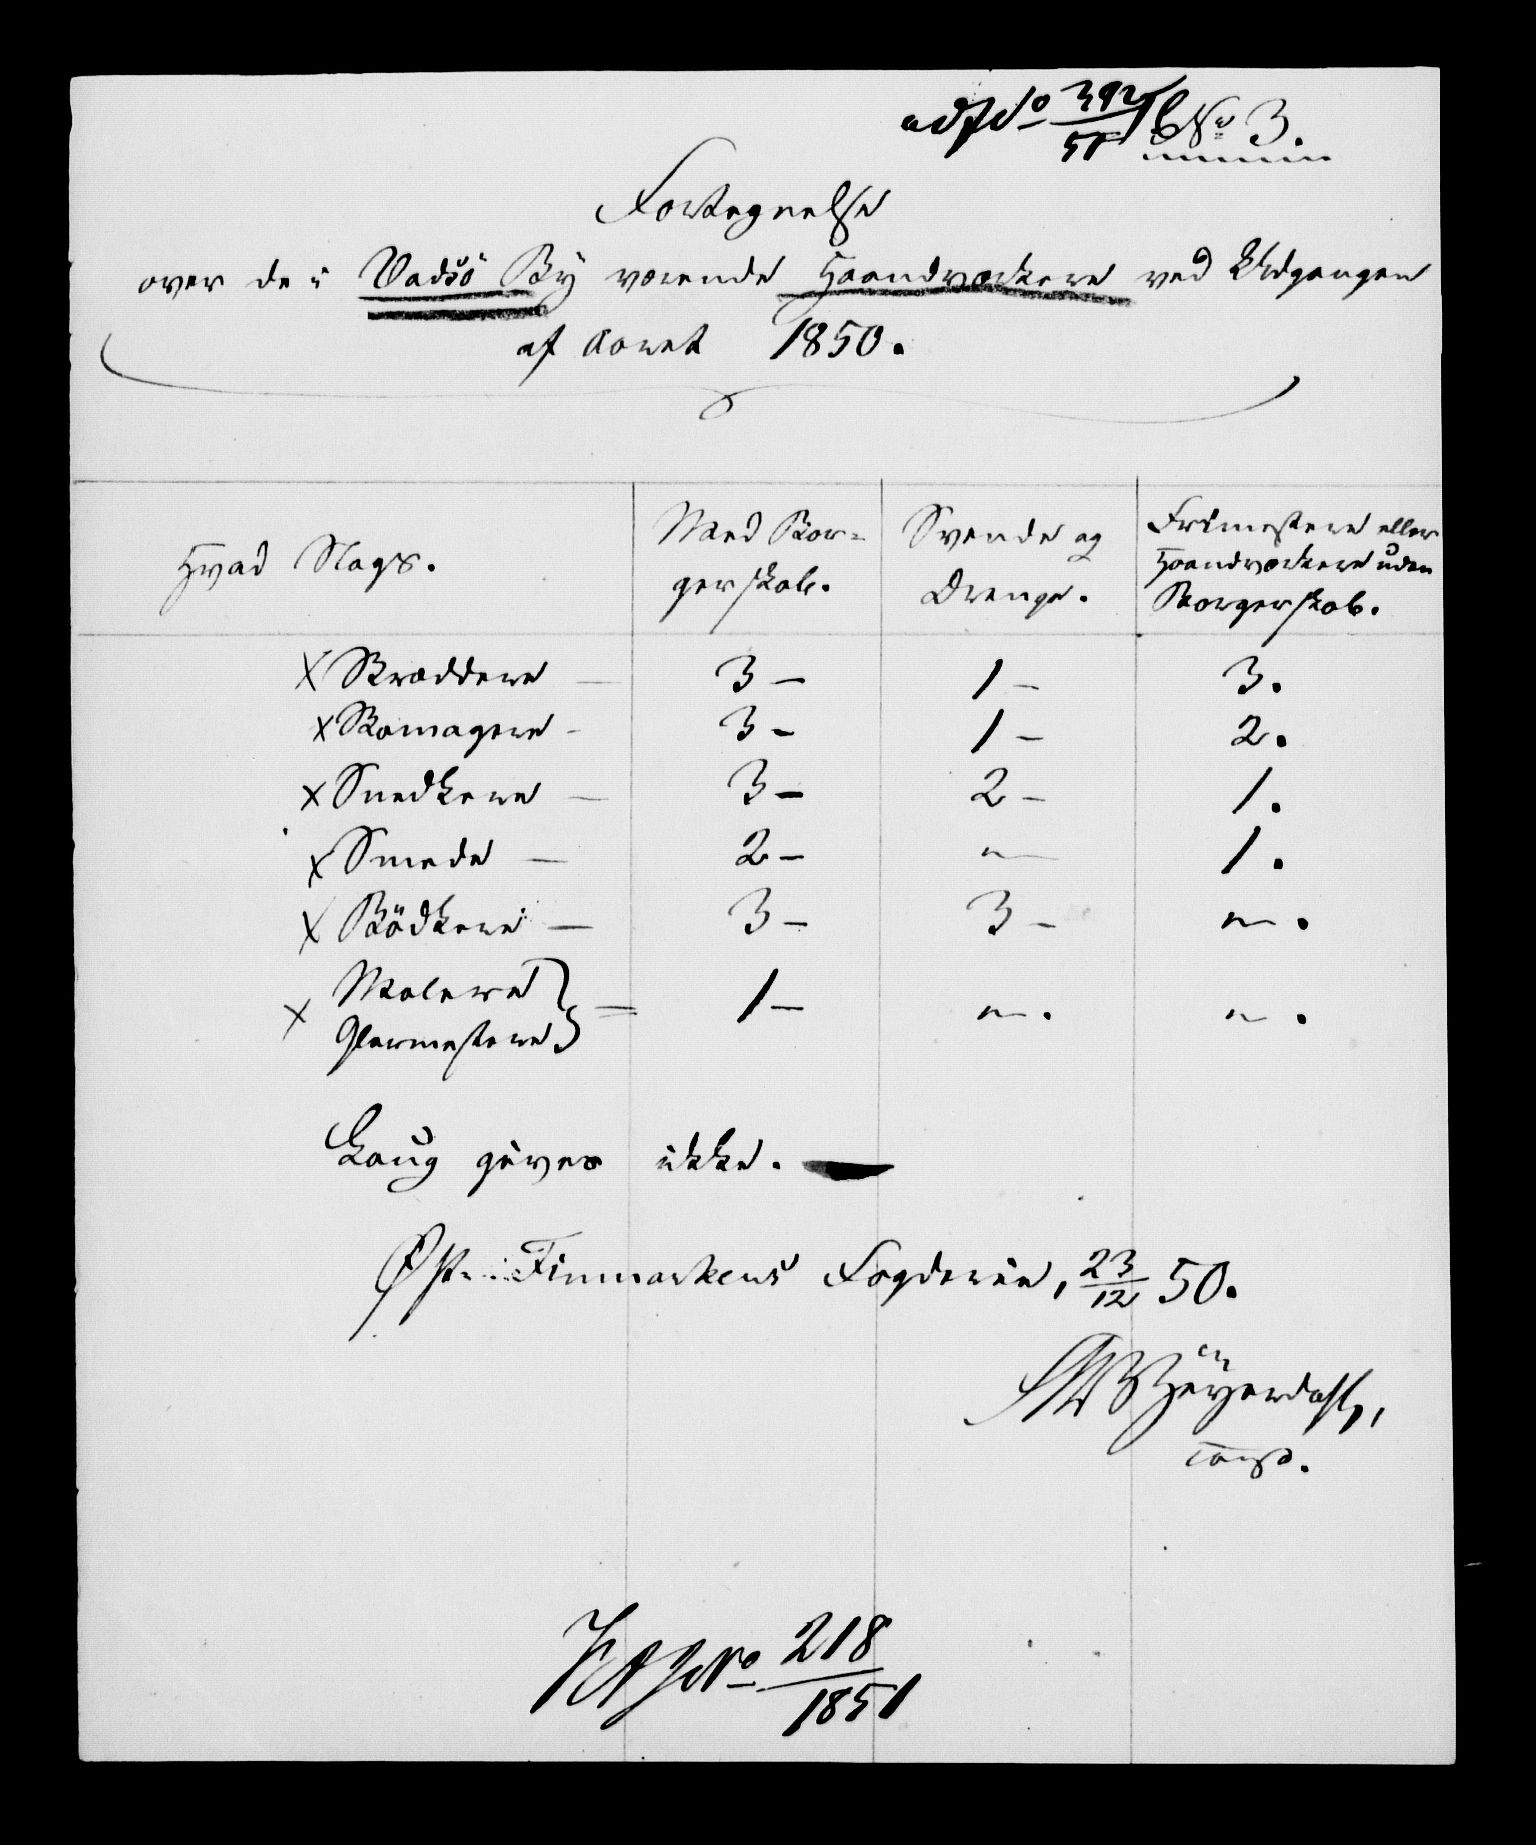 ad J No 392/51 B No 3.
Fortegnelse
over de i Vadsö By værende Haandværkere ved Udgangen
af Aaret 1850.
Hvad Slags. Med Bor- Svende og Frimestere eller
gerskab. Drenge. Haandværkere uden
Borgerskab.
x Skræddere — 3 — 1 — 3.
x Skomagere — 3 — 1 — 2.
x Snedkere — 3 — 2 — 1.
x Smede — 2 — " — 1.
x Bödkere — 3 — 3 — " .
x Malere } = 1 — " . " .
Glarmestere
Laug gives ikke. —
Øst-Finmarkens Fogderie, 23/12 50.
Heyerdahl,
const.
J No 218/1851